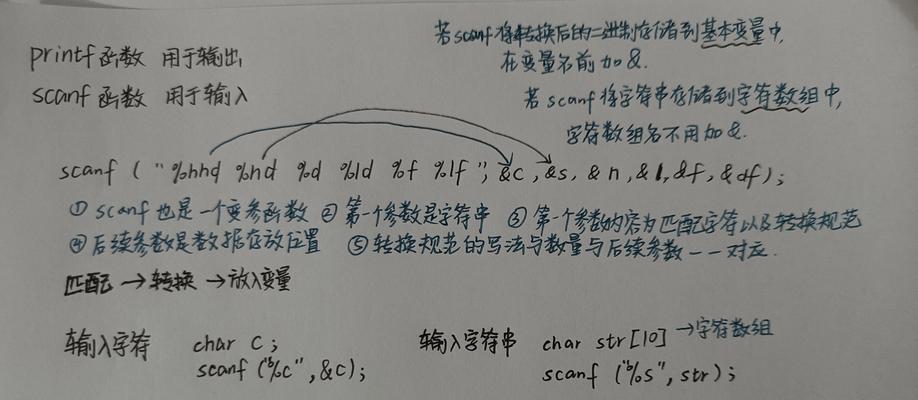 printf函数 用于输出
scanf函数 用于输入
若scanf将转换后的二进制存储到基本变量中,
在变量名前加&.
若scanf将字符串存储到字符数组中,
字符数组名不用加&.
scanf ( "%hhd %hd %d %ld %f %lf", &c, &s, &n, &l, &f, &df);
① scanf也是一个变参函数 ② 第一个参数是字符串 ③ 第一个参数的内容为匹配字符以及转换规范
④ 后续参数是数据存放位置 ⑤ 转换规范的写法与数量与后续参数一一对应.
匹配→转换→放入变量
输入字符 char c;
scanf ("%c", &c);
输入字符串 char str[10] →字符数组
scanf ("%s", str);